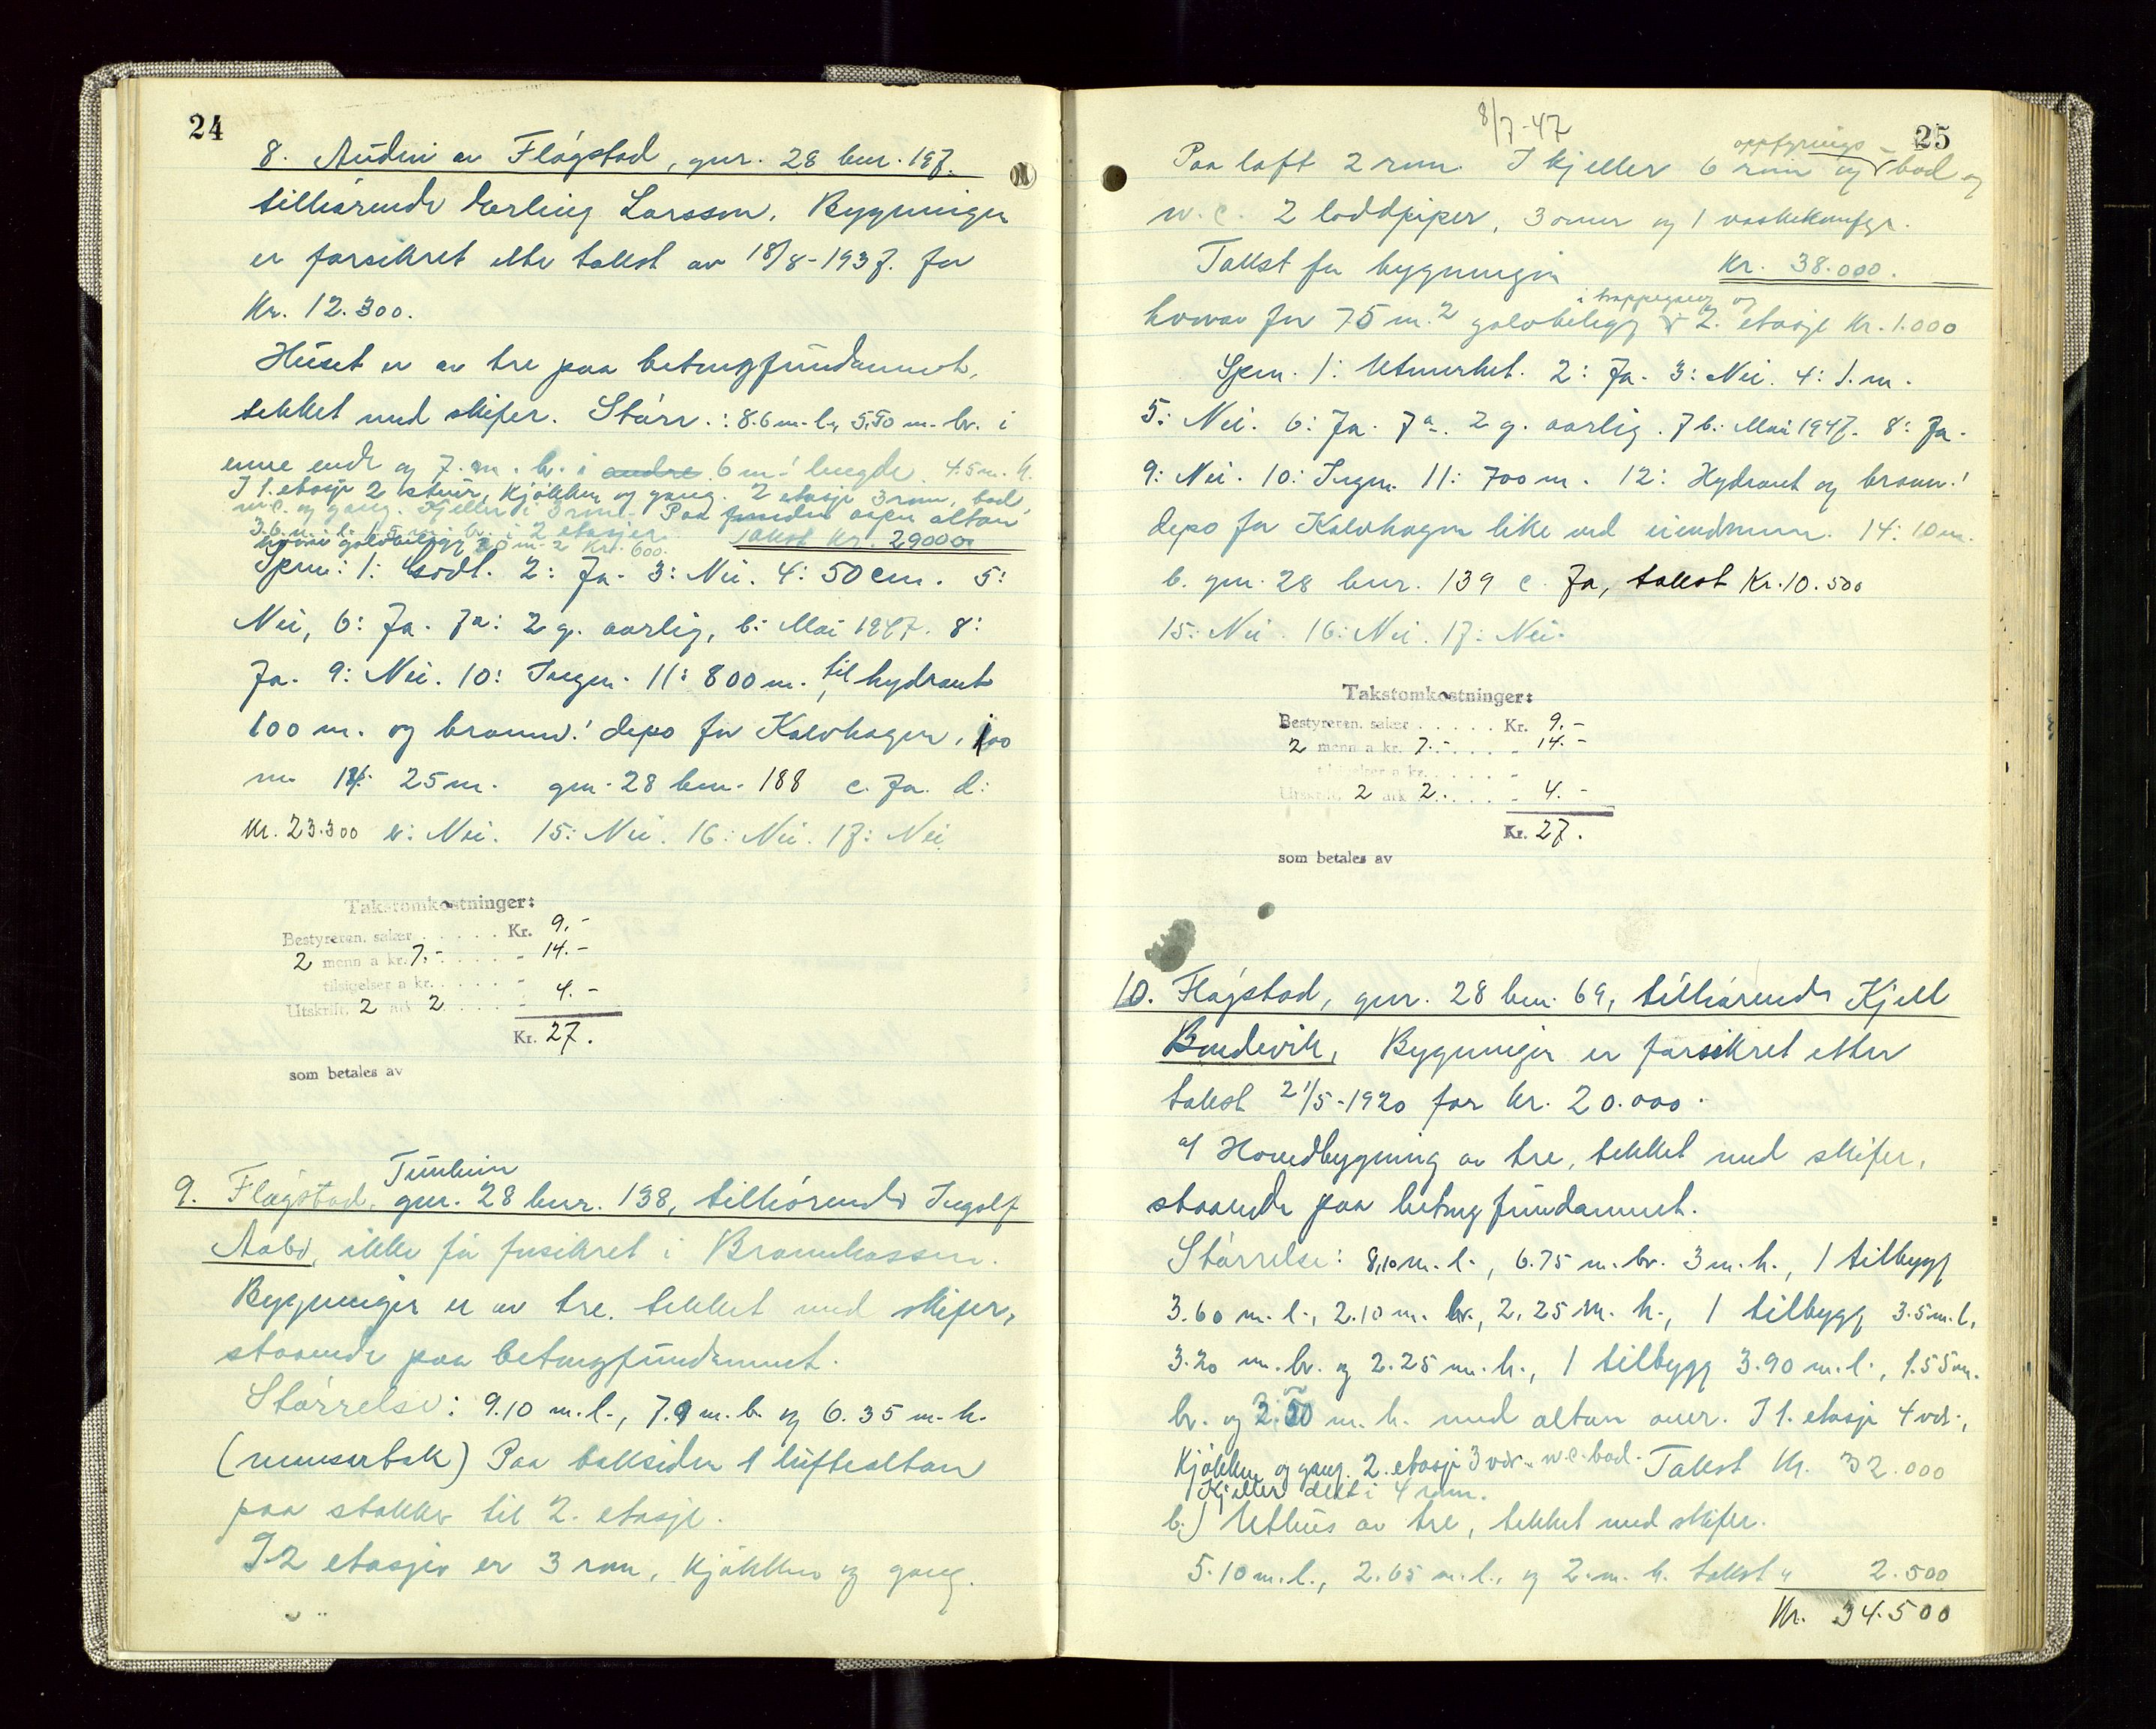 24
8. Audni av Flágstad, gnr. 28 bnr. 197.
tilhörende Erling Larssen. Bygningen
er forsikret etter takst av 18/8-1937. for
Kr. 12.300.
Huset er av tre paa betongfundament,
tekket med skifer. Störr.: 8.6 m. l., 5.50 m. br. i
enne ende og 7. m. br. i andre 6 m! lengde. 4.5 m. h.
I 1. etasje 2 stuer, kjökken og gang. 2 etasje 3 rom, bad,
w.c. og gang. Kjeller i 3 rom. Paa aapen altan
3.6 m. l. br. i 2 etasjer.
hvorav golvbelegg 20 m. 2 Kr. 600. Takst Kr. 29000
Spm: 1: Godt. 2: Ja. 3: Nei. 4: 50 cm. 5:
Nei, 6: Ja. 7a: 2 g. aarlig, b: Mai 1947. 8:
Ja. 9: Nei. 10: Ingen. 11: 800 m. til hydrant
100 m. og brannv! depo for Kalvhagen, 100
m. 14: 25 m. gnr. 28 bnr. 188 c. Ja. d:
Kr. 23.300 e: Nei. 15: Nei. 16: Nei. 17: Nei
Takstomkostninger:
Bestyreren. salær . . . . . Kr. 9.-
2 menn a kr. 7.- . . . . - 14.-
tilsigelser a kr. . . . . . -
Utskrift. 2 ark 2 . . . . - 4.-
Kr. 27.
som betales av
Tunheim
9. Flagstad, gnr. 28 bnr. 138, tilhörende Ingolf
Aabö, ikke för forsikret i Brannkassen.
Bygningen er av tre. tekket med skifer,
staaende paa betongfundament.
Störrelse: 9.10 m. l., 7.9 m. b. og 6.35 m. h.
(mansartak) Paa baksiden 1 luftealtan
paa stolker til 2. etasje.
I 2 etasjer er 3 rom, kjökken og gang.
8/7-47
25
oppfyrings-
Paa loft 2 rom. I kjeller 6 rom og bad og
w.c. 2 loddpiper, 3 omner og 1 vaskekomfyr.
Takst for bygningen Kr. 38.000.
i trappegang og
hvorav for 75 m.2 golvbelegg 2. etasje Kr. 1.000
Spm. 1: Utmerket. 2: Ja. 3: Nei. 4: 1. m.
5: Nei. 6: Ja. 7a. 2 g. aarlig. 7b: Mai 1947. 8: Ja.
9: Nei. 10: Ingen. 11: 700 m. 12: Hydrant og brannv!
depo for Kalvhagen like ved eiendommen. 14: 10 m.
b. gnr. 28 bnr. 139 c. Ja, takst Kr. 10.500
15: Nei. 16: Nei. 17: Nei.
Takstomkostninger:
Bestyreren. salær . . . . . Kr. 9.-
2 menn a kr. 7.- . . . . - 14.-
tilsigelser a kr. . . . . . -
Utskrift. 2 ark 2. . . . . - 4.-
Kr. 27.
som betales av
10. Flagstad, gnr. 28 bnr. 69, tilhörende Kjell
Bondevik. Bygningen er forsikret etter
takst 21/5-1920 for kr. 20.000.
a/ Hovedbygning av tre, tekket med skifer,
staaende paa betongfundament.
Störrelse: 8,10 m. l., 6.75 m. br. 3 m. h., 1 tilbygg
3.60 m. l., 2.10 m. br., 2.25 m. h., 1 tilbygg 3.5 m. l,
3.20 m. br. og 2.25 m. h., 1 tilbygg 3.90 m. l., 1.55 m.
br. og 2.50 m. h. med altan over. I 1. etasje 4 vær.,
Kjökken og gang. 2. etasje 3 vær. w.c. bad. Takst Kr. 32.000
Kjeller delt i 4 rom.
b.) Uthus av tre, tekket med skifer.
5.10 m. l., 2.65 m. l., og 2. m. h. takst " 2.500
Kr. 34.500